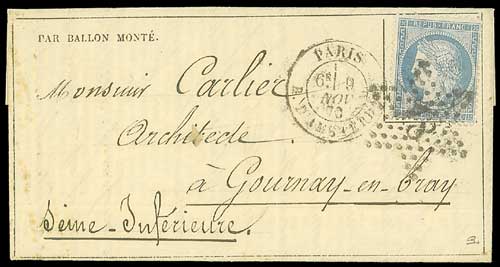 PAR BALLON MONTÉ.
REPUB. FRANC.
PARIS
NOV.
70
R. D'AMSTERDAM
Monsieur Carlier
Architecte
à Gournay-en-Bray
Seine-Inférieure.